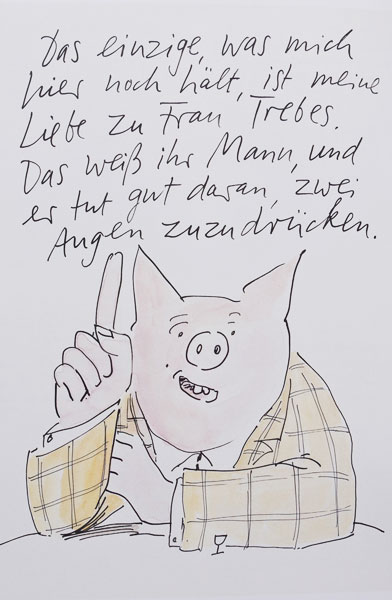 Das einzige, was mich
hier noch hält, ist meine
Liebe zu Frau Trebes.
Das weiß ihr Mann, und
er tut gut daran, zwei
Augen zuzudrücken.